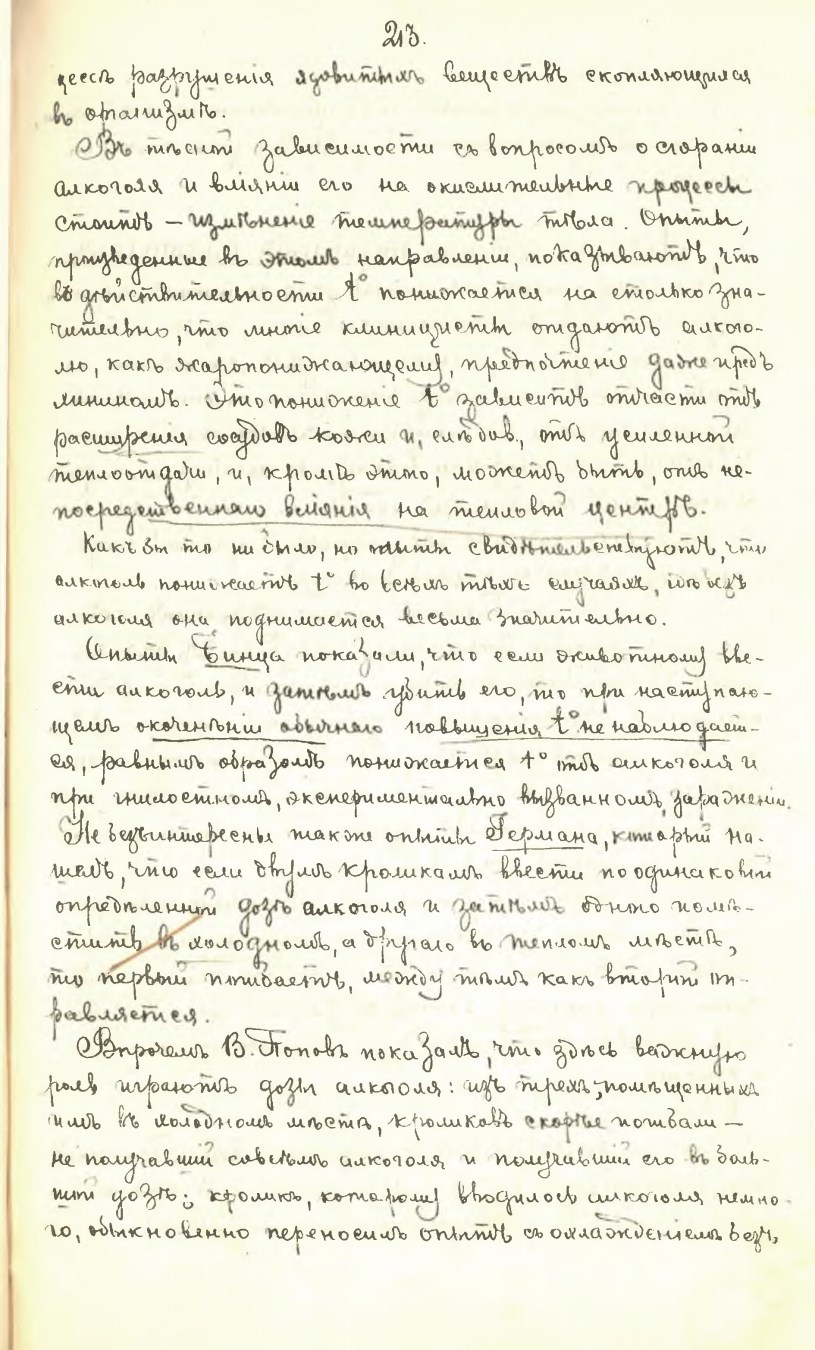 213.
цессъ разрушенія ядовитыхъ веществъ скопляющихся
въ организмѣ.
Въ тѣсной зависимости съ вопросомъ о сгораніи
алкоголя и вліяніи его на окислительные процессы
стоитъ — измѣненіе температуры тѣла. Опыты,
произведенные въ этомъ направленіи, показываютъ, что
въ дѣйствительности t° понижается на столько зна-
чительно, что многіе клиницисты отдаютъ алкого-
лю, какъ жаропонижающему, предпочтеніе даже предъ
хининомъ. Это пониженіе t° зависитъ отчасти отъ
расширенія сосудовъ кожи и, слѣдов., отъ усиленной
теплоотдачи, и, кромѣ этого, можетъ быть, отъ не-
посредственнаго вліянія на тепловой центръ.
Какъ бы то ни было, но опыты свидѣтельствуютъ, что
алкоголь понижаетъ t° во всѣхъ тѣхъ случаяхъ, гдѣ безъ
алкоголя она поднимается весьма значительно.
Опыты Бинца показали, что если животному вве-
сти алкоголь, и затѣмъ убить его, то при наступаю-
щемъ окоченѣніи обычнаго повышенія t° не наблюдает-
ся, равнымъ образомъ понижается t° отъ алкоголя и
при гнилостномъ, экспериментально вызванномъ, зараженіи.
Не безъинтересны также опыты Германа, который на-
шелъ, что если двумъ кроликамъ ввести по одинаковой
опредѣленной дозѣ алкоголя и затѣмъ одного помѣ-
стить въ холодномъ, а другаго въ тепломъ мѣстѣ,
то первый погибаетъ, между тѣмъ какъ второй оп-
равляется.
Впрочемъ В. Поповъ показалъ, что здѣсь важную
роль играютъ дозы алкоголя: изъ трехъ, помѣщенныхъ
имъ въ холодномъ мѣстѣ, кроликовъ скорѣе погибали —
не получавшій совсѣмъ алкоголя и получавшій его въ боль-
шой дозѣ; кроликъ, которому вводилось алкоголя немно-
го, обыкновенно переносилъ опытъ съ охлажденіемъ безъ